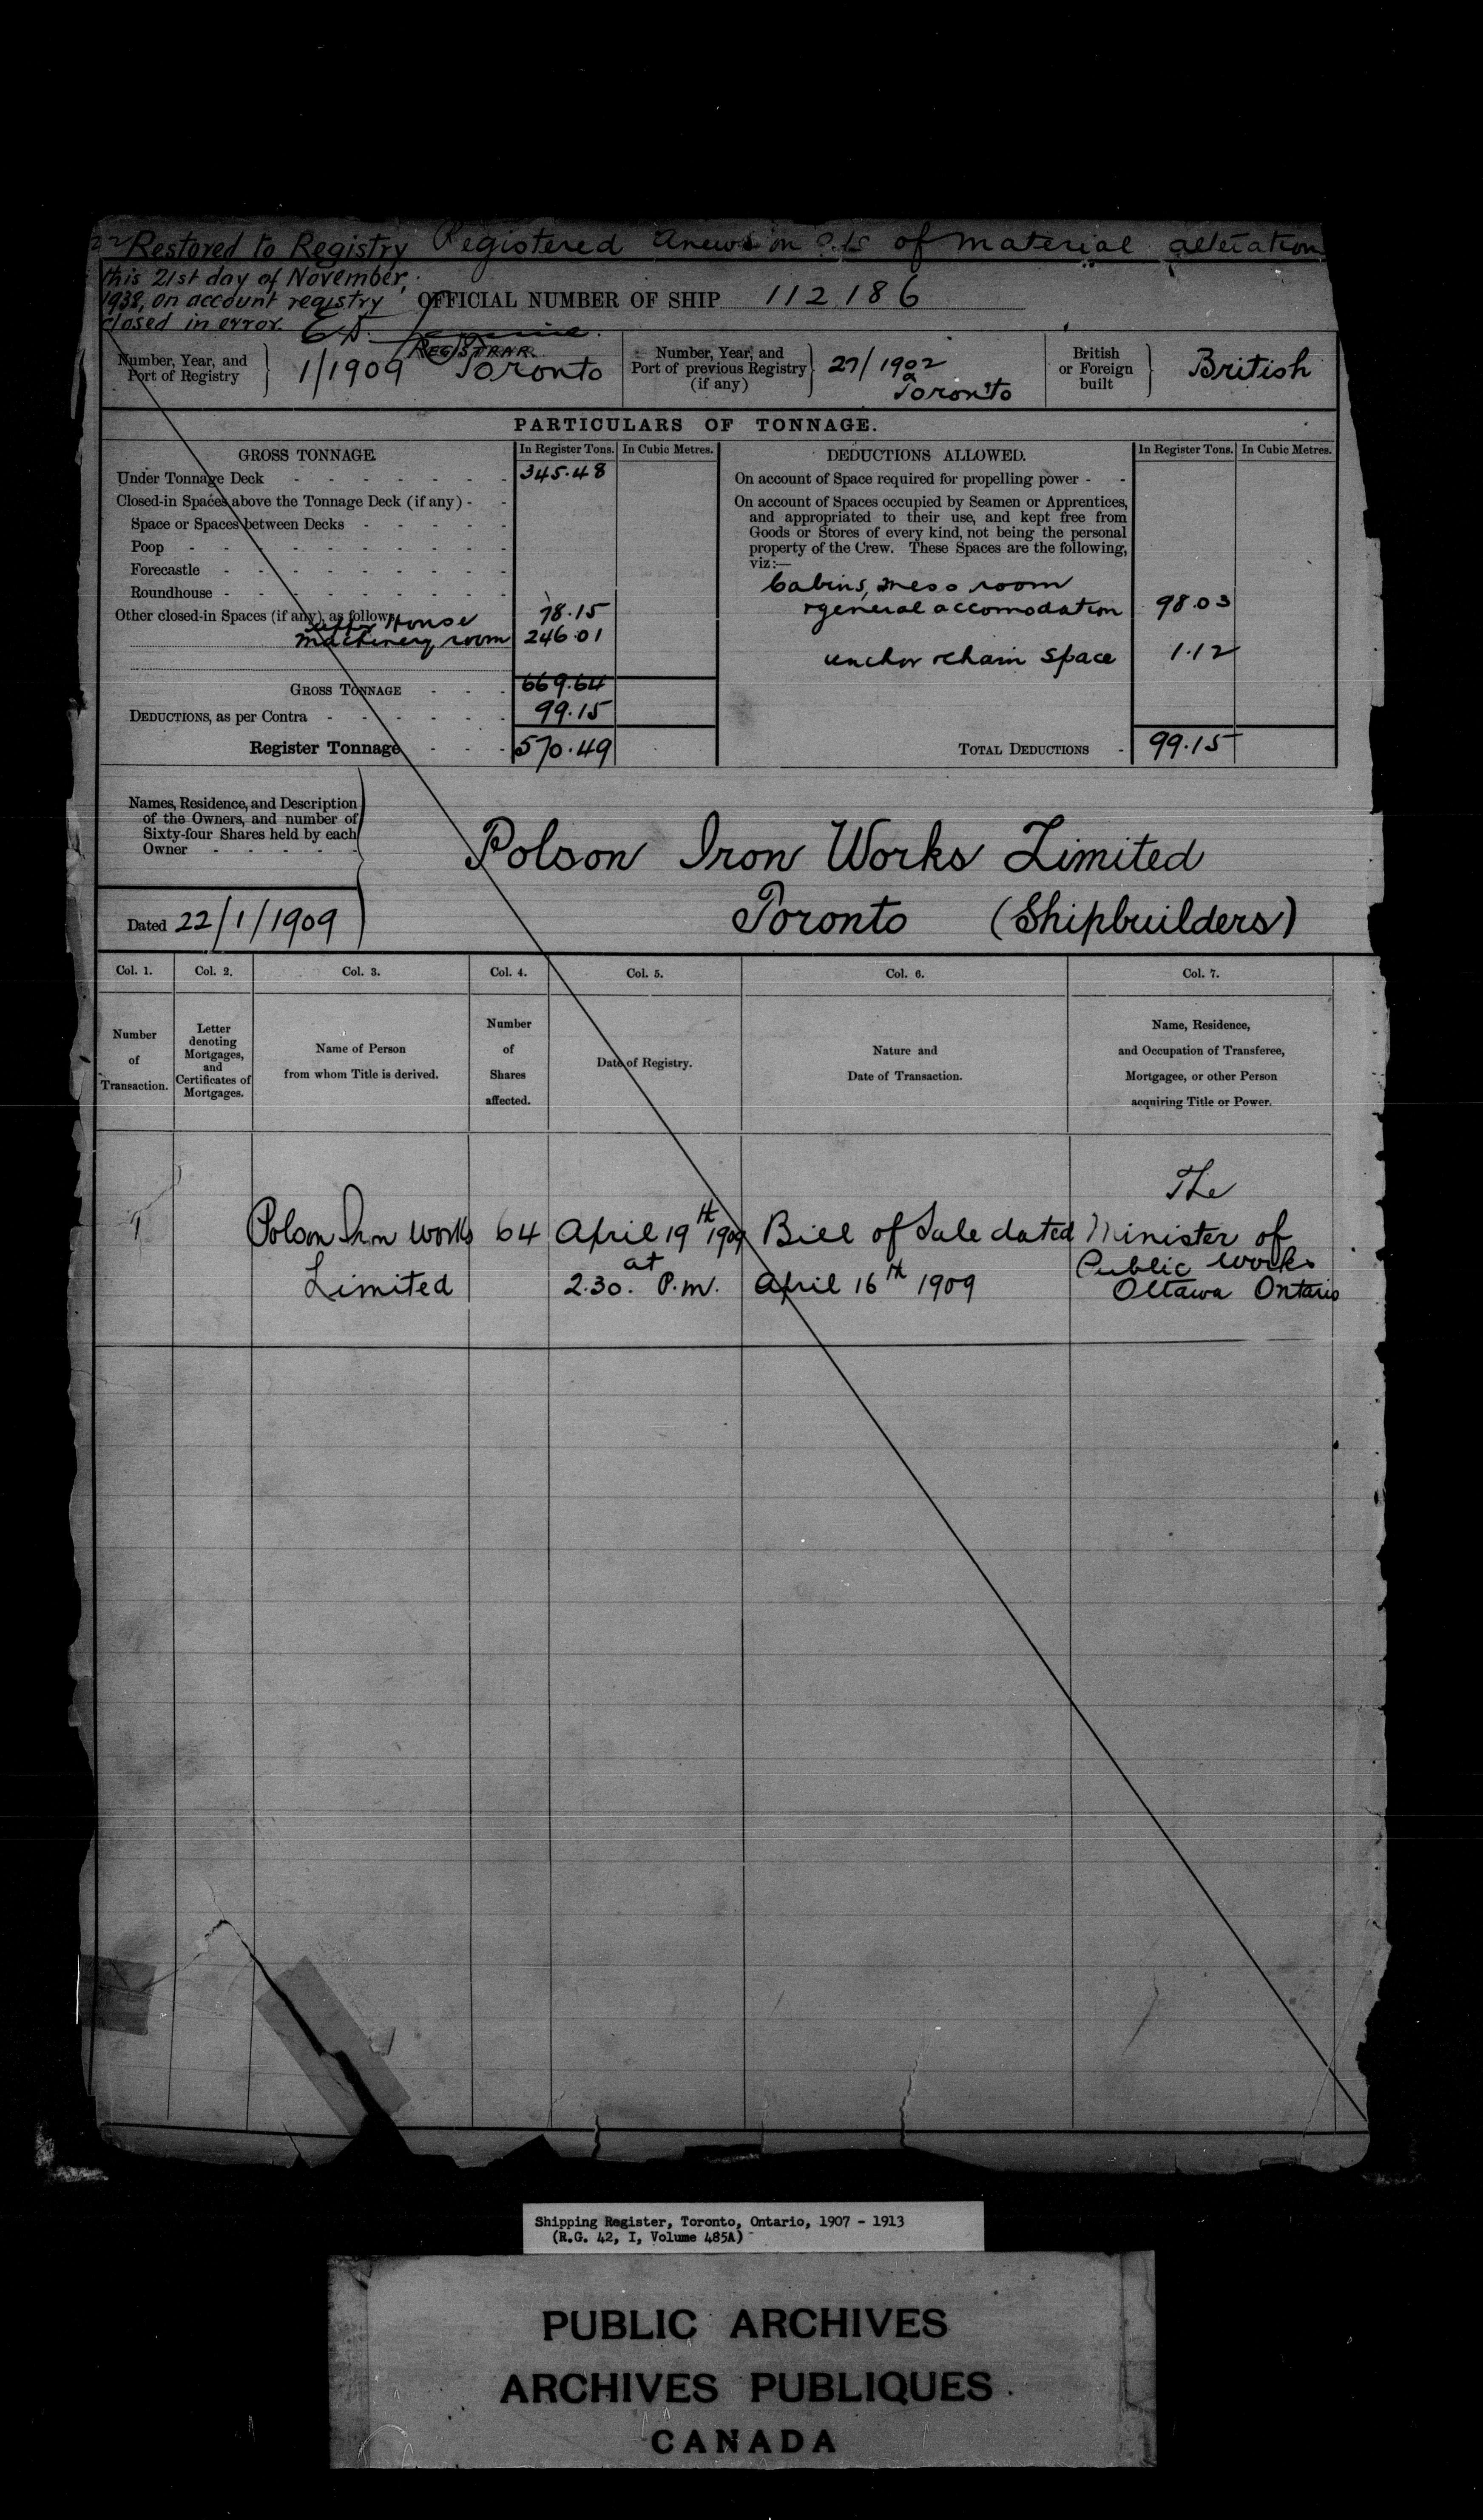 Restored to Registry Registered Anew on of material alteration
this 21st day of November,
1938, on account registry
closed in error.
REGISTRAR.
OFFICIAL NUMBER OF SHIP 112186
Number, Year, and Port of Registry 1/1909 Toronto
Number, Year, and Port of previous Registry (if any) 27/1902 Toronto
British or Foreign built British
PARTICULARS OF TONNAGE.
GROSS TONNAGE. In Register Tons. In Cubic Metres.
Under Tonnage Deck 345.48
Closed-in Spaces above the Tonnage Deck (if any)
Space or Spaces between Decks
Poop
Forecastle
Roundhouse
Other closed-in Spaces (if any), as follows House 78.15
machinery room 246.01
GROSS TONNAGE 669.64
DEDUCTIONS, as per Contra 99.15
Register Tonnage 570.49
DEDUCTIONS ALLOWED. In Register Tons. In Cubic Metres.
On account of Space required for propelling power
On account of Spaces occupied by Seamen or Apprentices,
and appropriated to their use, and kept free from
Goods or Stores of every kind, not being the personal
property of the Crew. These Spaces are the following,
viz:—
Cabins, mess room
& general accomodation 98.03
anchor & chain space 1.12
TOTAL DEDUCTIONS 99.15
Names, Residence, and Description
of the Owners, and number of
Sixty-four Shares held by each
Owner
Dated 22/1/1909
Polson Iron Works Limited
Toronto (Shipbuilders)
Col. 1. Col. 2. Col. 3. Col. 4. Col. 5. Col. 6. Col. 7.
Number
of
Transaction.
Letter
denoting
Mortgages,
and
Certificates of
Mortgages.
Name of Person
from whom Title is derived.
Number
of
Shares
affected.
Date of Registry.
Nature and
Date of Transaction.
Name, Residence,
and Occupation of Transferee,
Mortgagee, or other Person
acquiring Title or Power.
1
Polson Iron Works
Limited
64
April 19th 1909
at
2.30. P.m.
Bill of Sale dated
April 16th 1909
The
Minister of
Public Works
Ottawa Ontario
Shipping Register, Toronto, Ontario, 1907 - 1913
(R.G. 42, I, Volume 485A)
PUBLIC ARCHIVES
ARCHIVES PUBLIQUES
CANADA